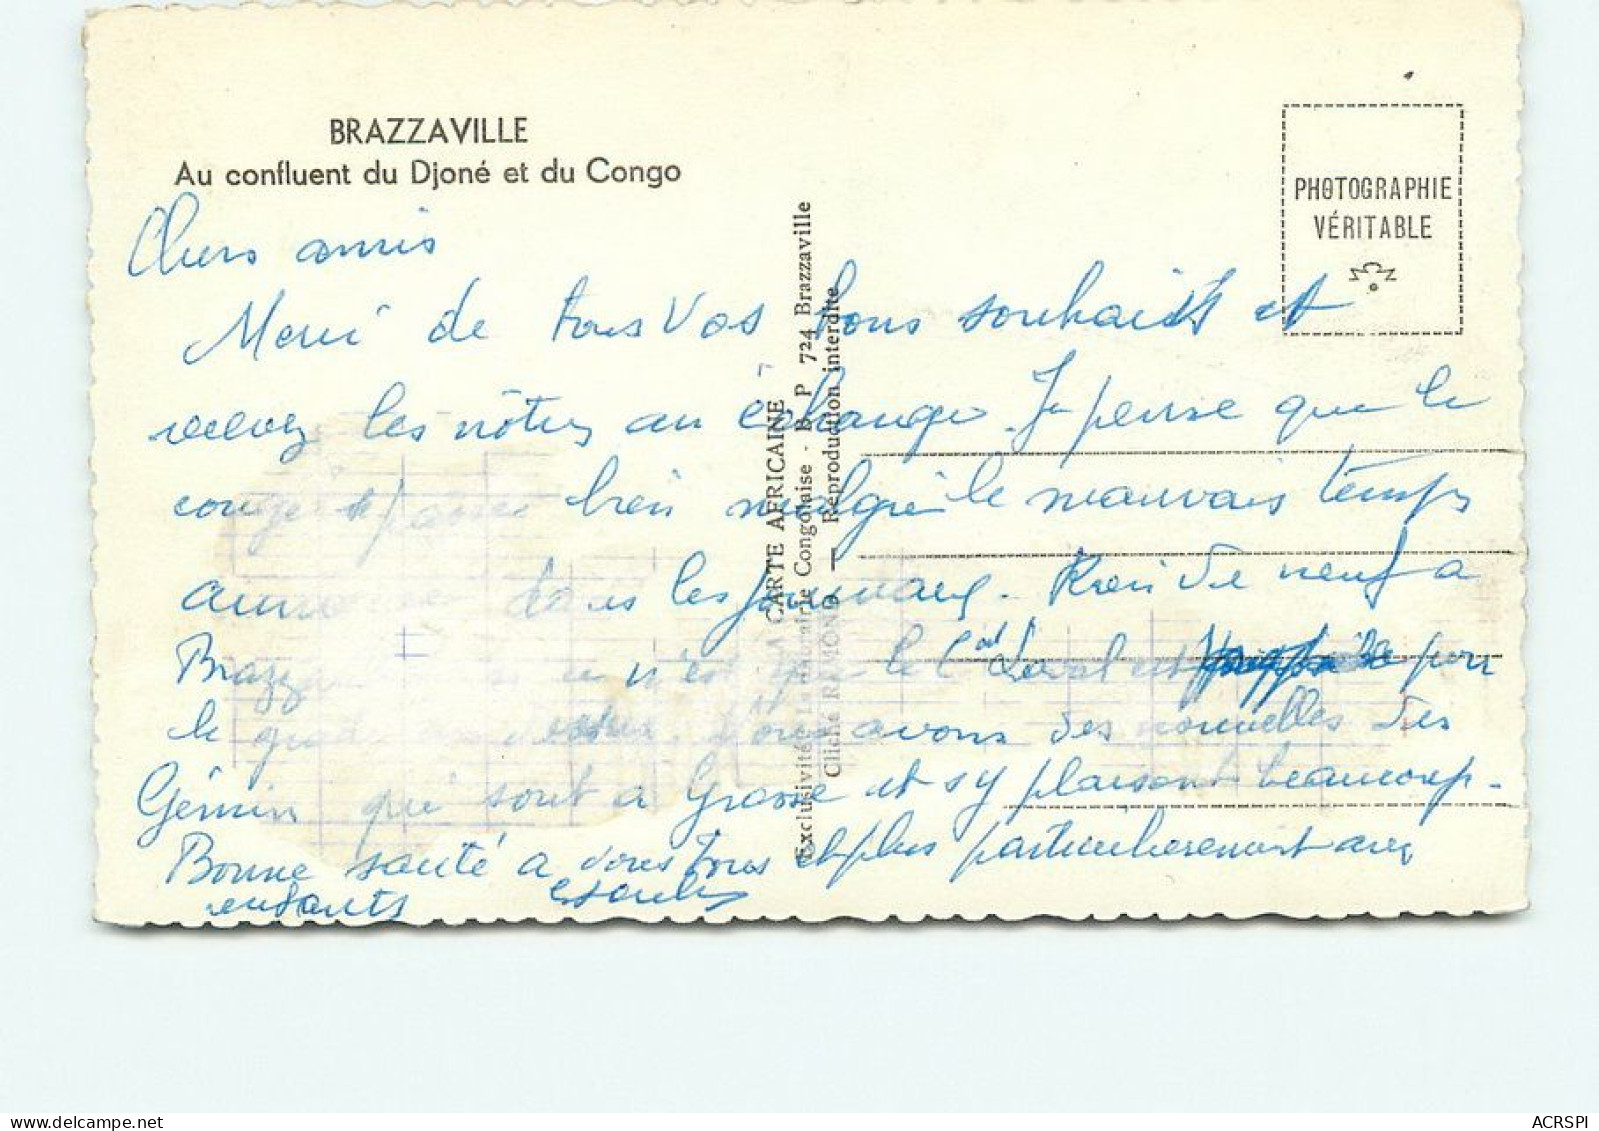 BRAZZAVILLE
Au confluent du Djoné et du Congo
PHOTOGRAPHIE
VÉRITABLE
CARTE AFRICAINE
Exclusivité: La Librairie Congolaise - B P 724 Brazzaville
Cliché RAMOND — Reproduction interdite
Chers amis
Merci de tous vos bons souhaits et
recevez les nôtres en échange. Je pense que le
congé se passe bien malgré le mauvais temps
annoncé dans les journaux. Rien de neuf a
Brazza si ce n'est que le Cdt est pour
le grade Nous avons des nouvelles des
Gémin qui sont a Grasse et s'y plaisent beaucoup.
Bonne santé a vous tous et plus particulièrement aux
enfants
ACRSPI